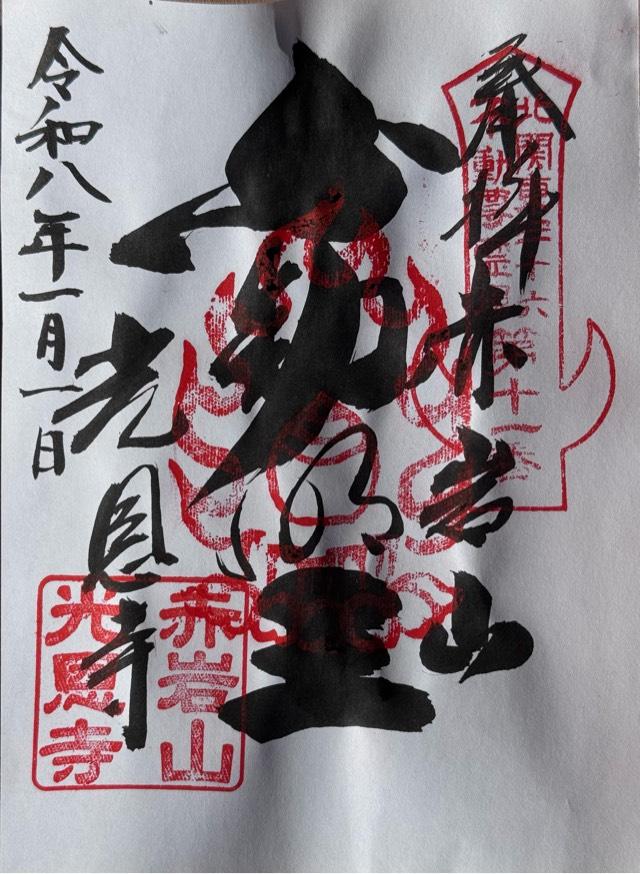 奉拝 赤岩山
北関東三十六
不動尊霊場
不動明王
光恩寺
赤岩山
光恩寺
令和八年一月一日